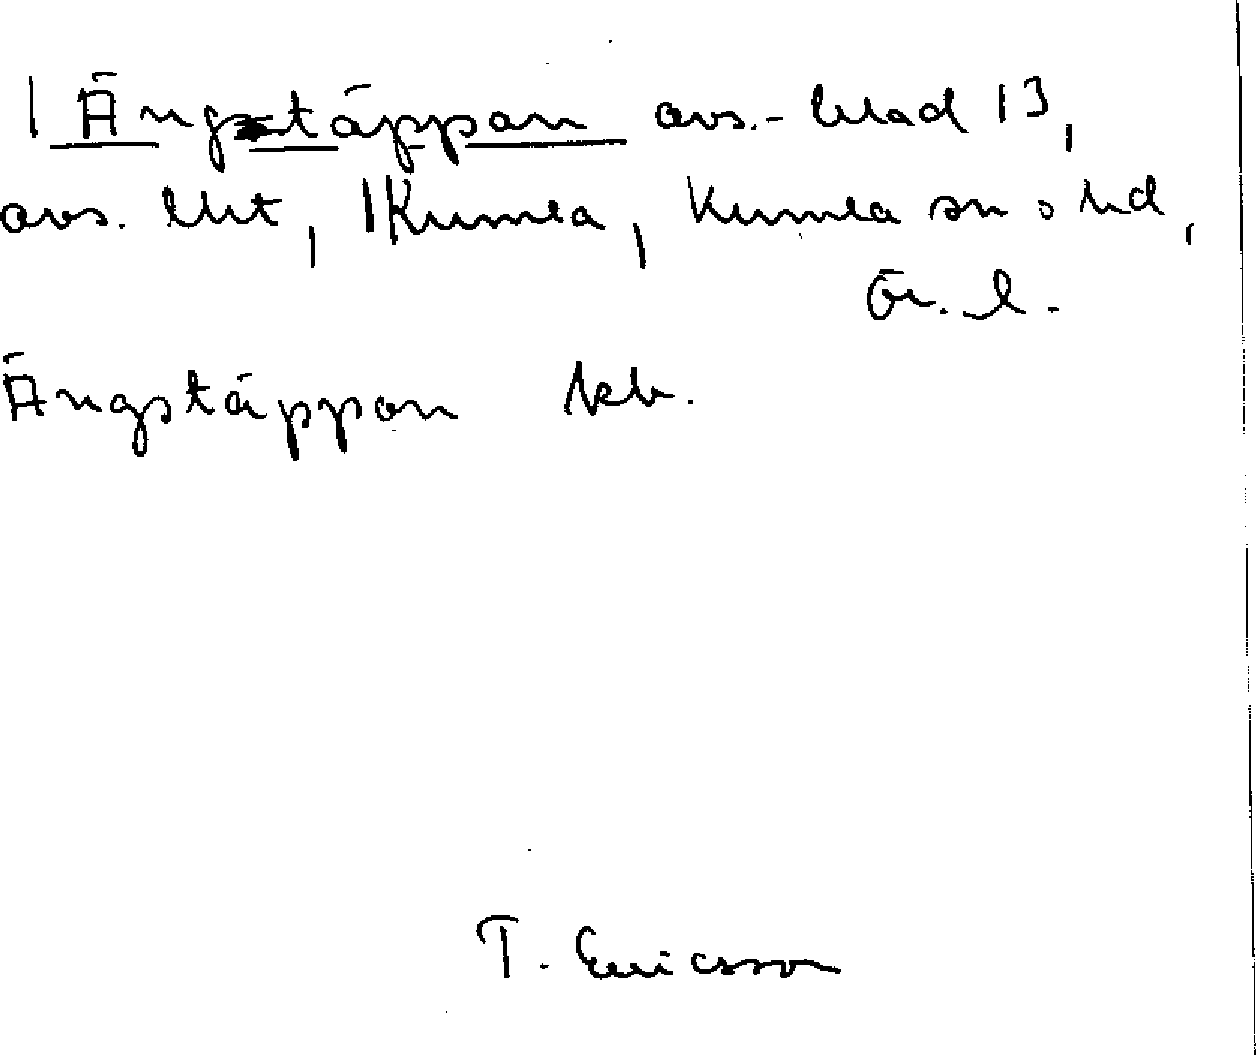 Ängstäppan avs.-blad 13,
avs. lht, Kumla, Kumla sn o hd,
Ör. l.
Ängstäppan kb.
T. Ericsson